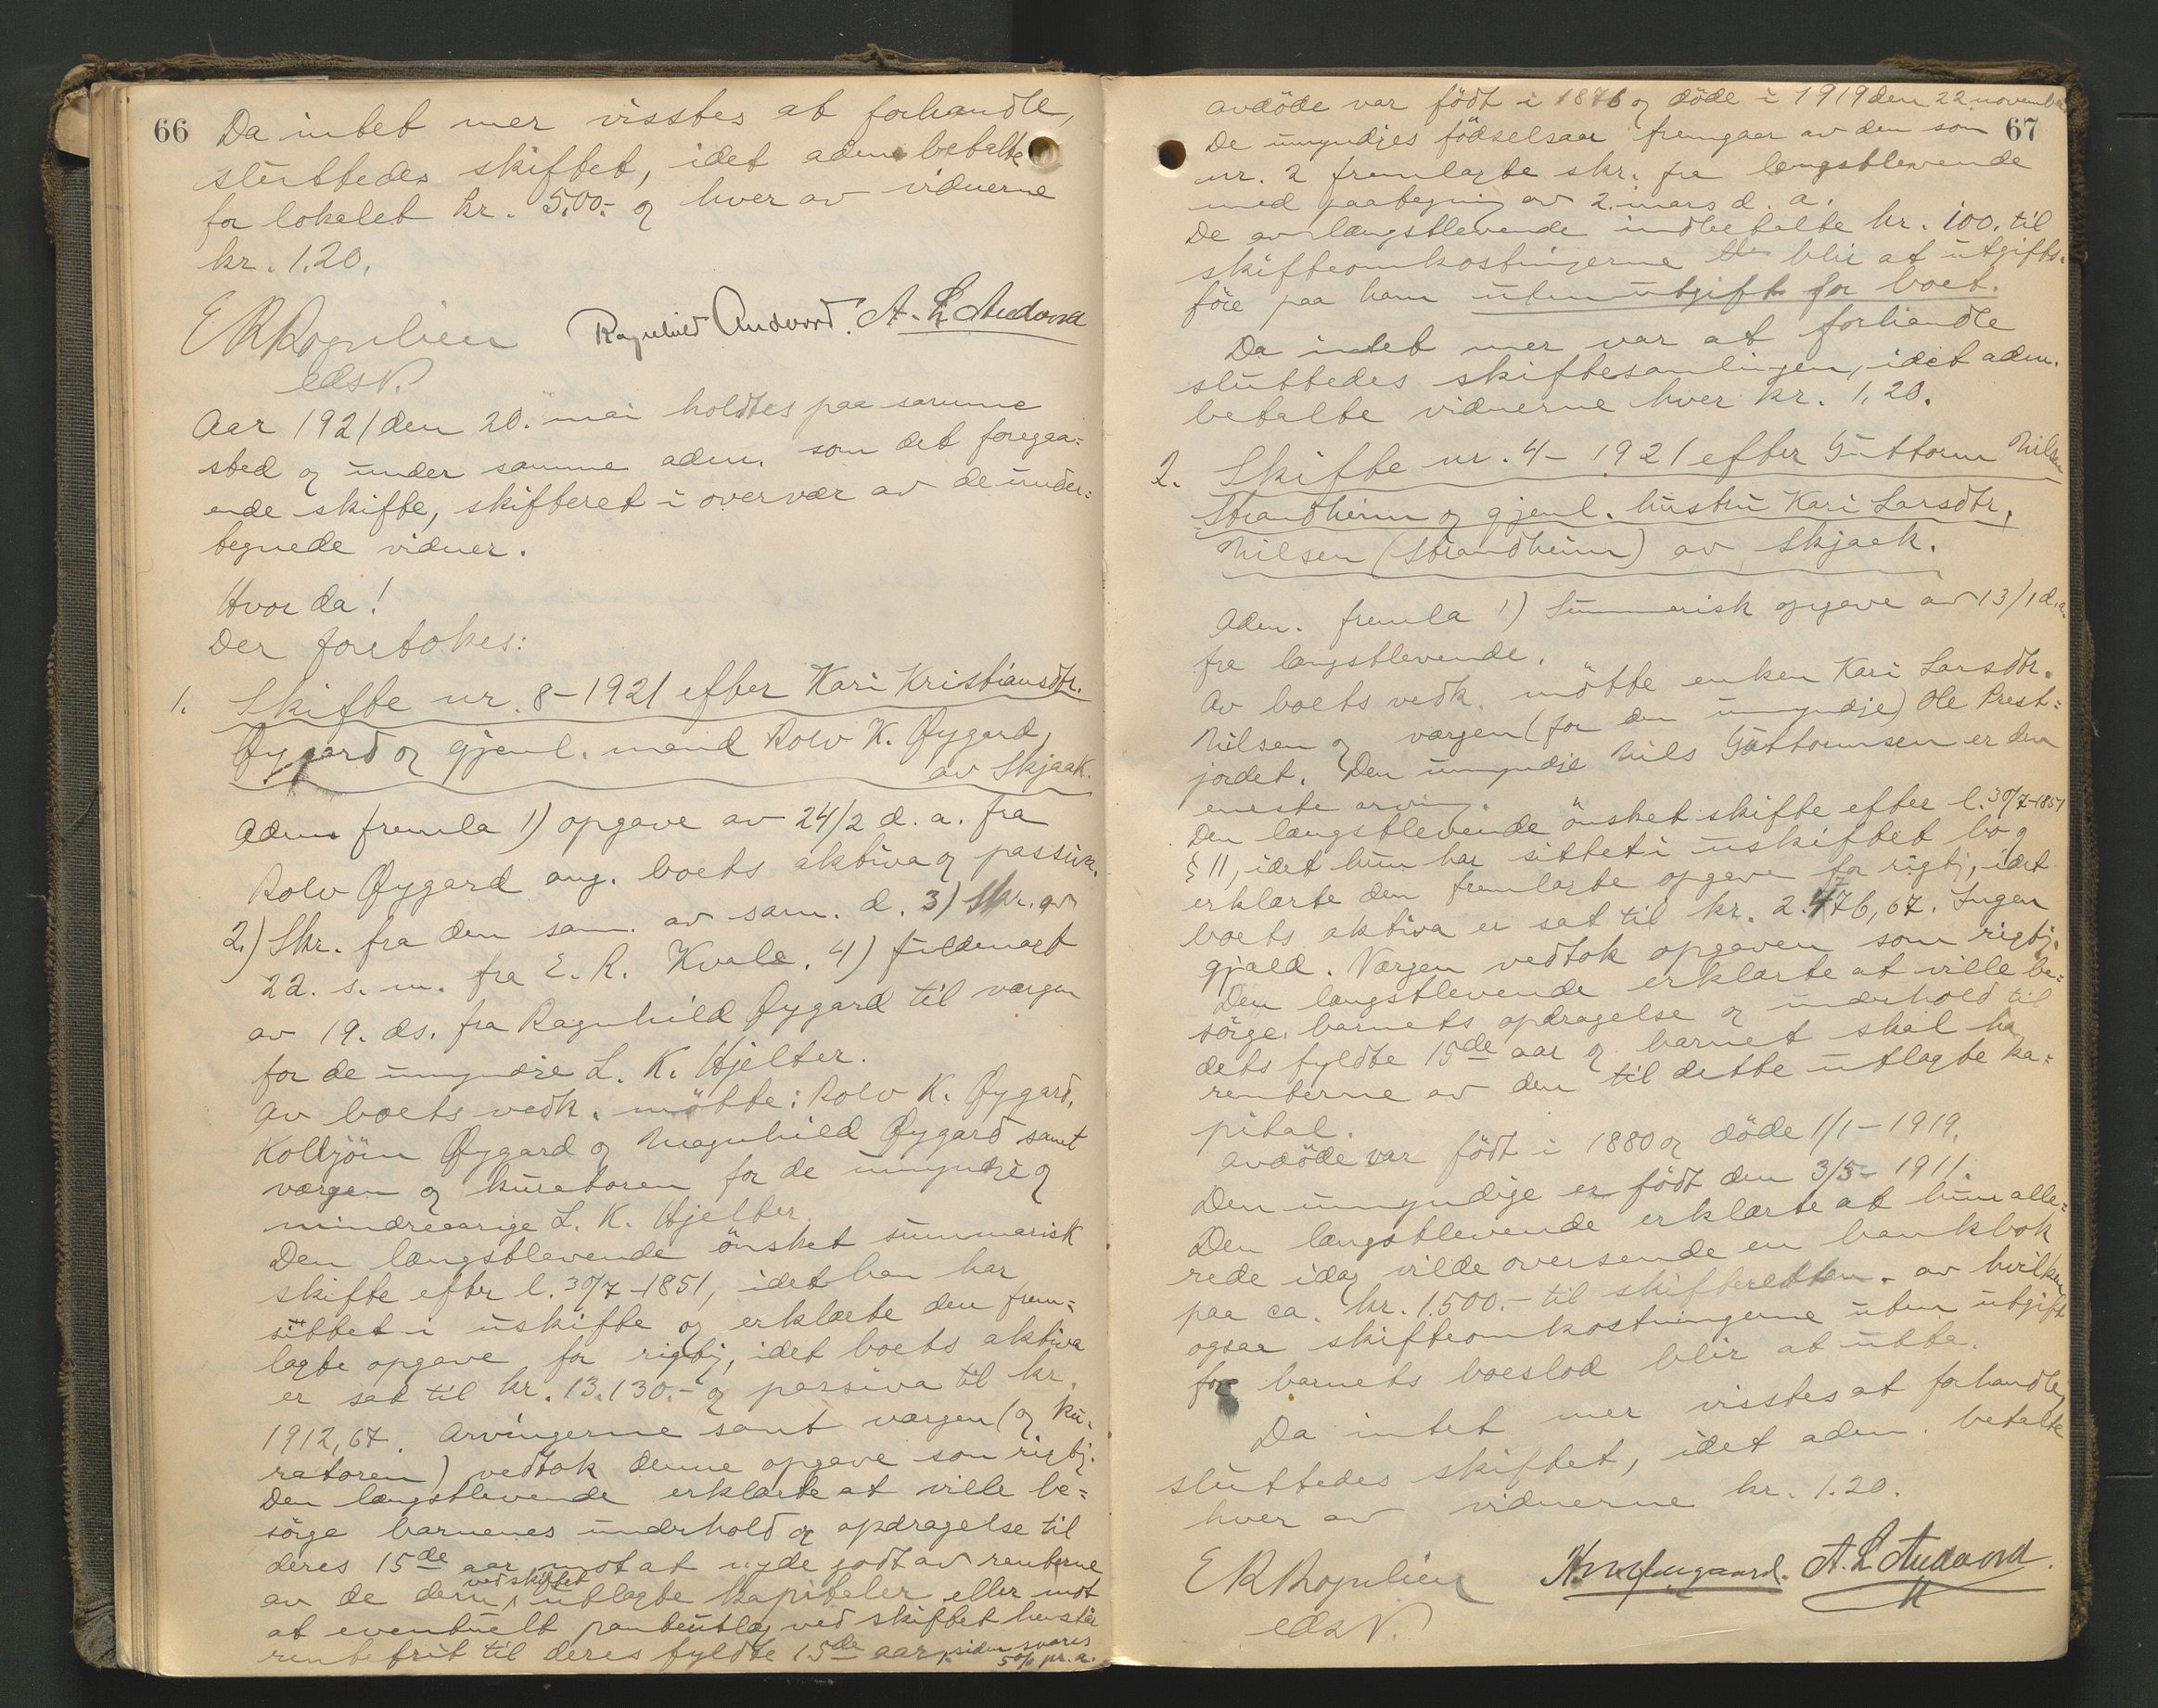 66
Da intet mer visstes at forhandle,
sluttedes skiftet, idet adm. betalte
for lokalet kr. 5.00.- og hver av vidnerne
kr. 1.20.
E R Rognlien Ragnhild Andvord. A. L. Andvord
edsv.
Aar 1921 den 20. mai holdtes paa samme
sted og under samme adm. som det foregaa=
ende skifte, skifteret i overvær av de under=
tegnede vidner.
Hvor da!
Der foretokes:
1. Skifte nr. 8-1921 efter Kari Kristiansdtr.
Øygard og gjenl. mand Rolv K. Øygard,
av Skjaak.
Adm. fremla 1) opgave av 24/2 d. a. fra
Rolv Øygard ang. boets aktiva og passiva.
2.) Skr. fra den sam. av sam. d. 3) Skr. av
22. s. m. fra E. R. Kvale. 4) fuldmagt
av 19. ds. fra Ragnhild Øygard til værgen
for de umyndige L. K. Hjelter.
Av boets vedk. mötte: Rolv K. Øygard,
Kolbjörn Øygard og Magnhild Øygard samt
værgen og kuratoren for de umyndige og
mindreaarige L. K. Hjelter.
Den længstlevende önsket summarisk
skifte efter l. 30/7-1851, idet han har
sittet i uskifte og erklærte den frem=
lagte opgave for rigtig, idet boets aktiva
er sat til kr. 13.130.- og passiva til kr.
1912,67. Arvingerne samt værgen (og ku=
ratoren) vedtok denne opgave som rigtig.
Den længstlevende erklærte at ville be=
sörge barnenes underhold og opdragelse til
deres 15de aar mot at nyde godt av renterne
av de dem ved skiftet utlagte kapitaler eller mot
at eventuelt panteutlæg ved skiftet henstår
rentefrit til deres fyldte 15de aar, siden svares
5% pr. a.
67
avdöde var födt i 1876 og döde i 1919 den 22. november
De umyndiges födselsaar fremgaar av den som
nr. 2 fremlagte skr. fra længstlevende
med paategning av 2. mars d. a.
De av længstlevende indbetalte kr. 100. til
skifteomkostningerne blir at utgifts=
före paa ham uten utgift for boet.
Da intet mer var at forhandle
sluttedes skiftesamlingen, idet adm.
betalte vidnerne hver kr. 1,20.
2. Skifte nr. 4- 1921 efter Guttorm Nilsen
Strandheim og gjenl. hustru Kari Larsdtr.
Nilsen (Strandheim) av Skjaak.
Adm. fremla 1) Summarisk opgave av 13/1 d. a.
fra længstlevende.
Av boets vedk. mötte enken Kari Larsdtr.
Nilsen og værgen (for den umyndige) Ole Prest=
jordet. Den umyndige Nils Guttormsen er den
eneste arving.
Den længstlevende önsket skifte efter l. 30/7-1851
§ 11, idet hun har sittet i uskiftet bo og
erklærte den fremlagte opgave for rigtig, idet
boets aktiva er sat til kr. 2.476,67. Ingen
gjæld. Værgen vedtok opgaven som rigtig.
Den længstlevende erklærte at ville be=
sörge barnets opdragelse og underhold til
dets fyldte 15de aar og barnet skal ha
renterne av den til dette utlagte ka=
pital.
Avdöde var födt i 1880 og döde 1/1-1919.
Den umyndige er födt den 3/5-1911.
Den længstlevende erklærte at hun alle=
rede idag vilde oversende en bankbok
paa ca. kr. 1.500.- til skifteretten. av hvilken
ogsaa skifteomkostningerne uten utgift
for barnets boeslod blir at utta.
Da intet mer visstes at forhandle,
sluttedes skiftet, idet adm. betalte
hver av vidnerne kr. 1.20.
E R Rognlien A. L. Andvord.
edsv.